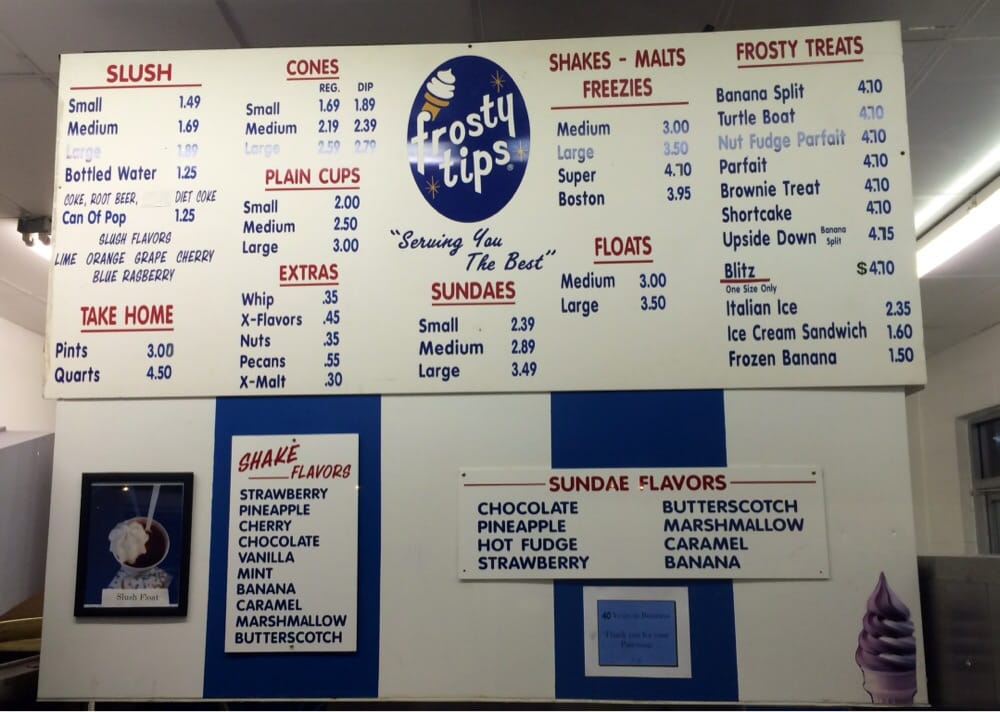 SLUSH
Small 1.49
Medium 1.69
Large 1.89
Bottled Water 1.25
COKE, ROOT BEER, DIET COKE
Can Of Pop 1.25
SLUSH FLAVORS
LIME ORANGE GRAPE CHERRY
BLUE RASBERRY
TAKE HOME
Pints 3.00
Quarts 4.50
CONES
REG. DIP
Small 1.69 1.89
Medium 2.19 2.39
Large 2.59 2.79
PLAIN CUPS
Small 2.00
Medium 2.50
Large 3.00
EXTRAS
Whip .35
X-Flavors .45
Nuts .35
Pecans .55
X-Malt .30
frosty
tips®
"Serving You
The Best"
SUNDAES
Small 2.39
Medium 2.89
Large 3.49
SHAKES - MALTS
FREEZIES
Medium 3.00
Large 3.50
Super 4.70
Boston 3.95
FLOATS
Medium 3.00
Large 3.50
FROSTY TREATS
Banana Split 4.10
Turtle Boat 4.10
Nut Fudge Parfait 4.10
Parfait 4.10
Brownie Treat 4.10
Shortcake 4.10
Upside Down Banana Split 4.15
Blitz $4.10
One Size Only
Italian Ice 2.35
Ice Cream Sandwich 1.60
Frozen Banana 1.50
Slush Float
SHAKE
FLAVORS
STRAWBERRY
PINEAPPLE
CHERRY
CHOCOLATE
VANILLA
MINT
BANANA
CARAMEL
MARSHMALLOW
BUTTERSCOTCH
SUNDAE FLAVORS
CHOCOLATE BUTTERSCOTCH
PINEAPPLE MARSHMALLOW
HOT FUDGE CARAMEL
STRAWBERRY BANANA
40 Years in Business
Thank you for your
Patronage